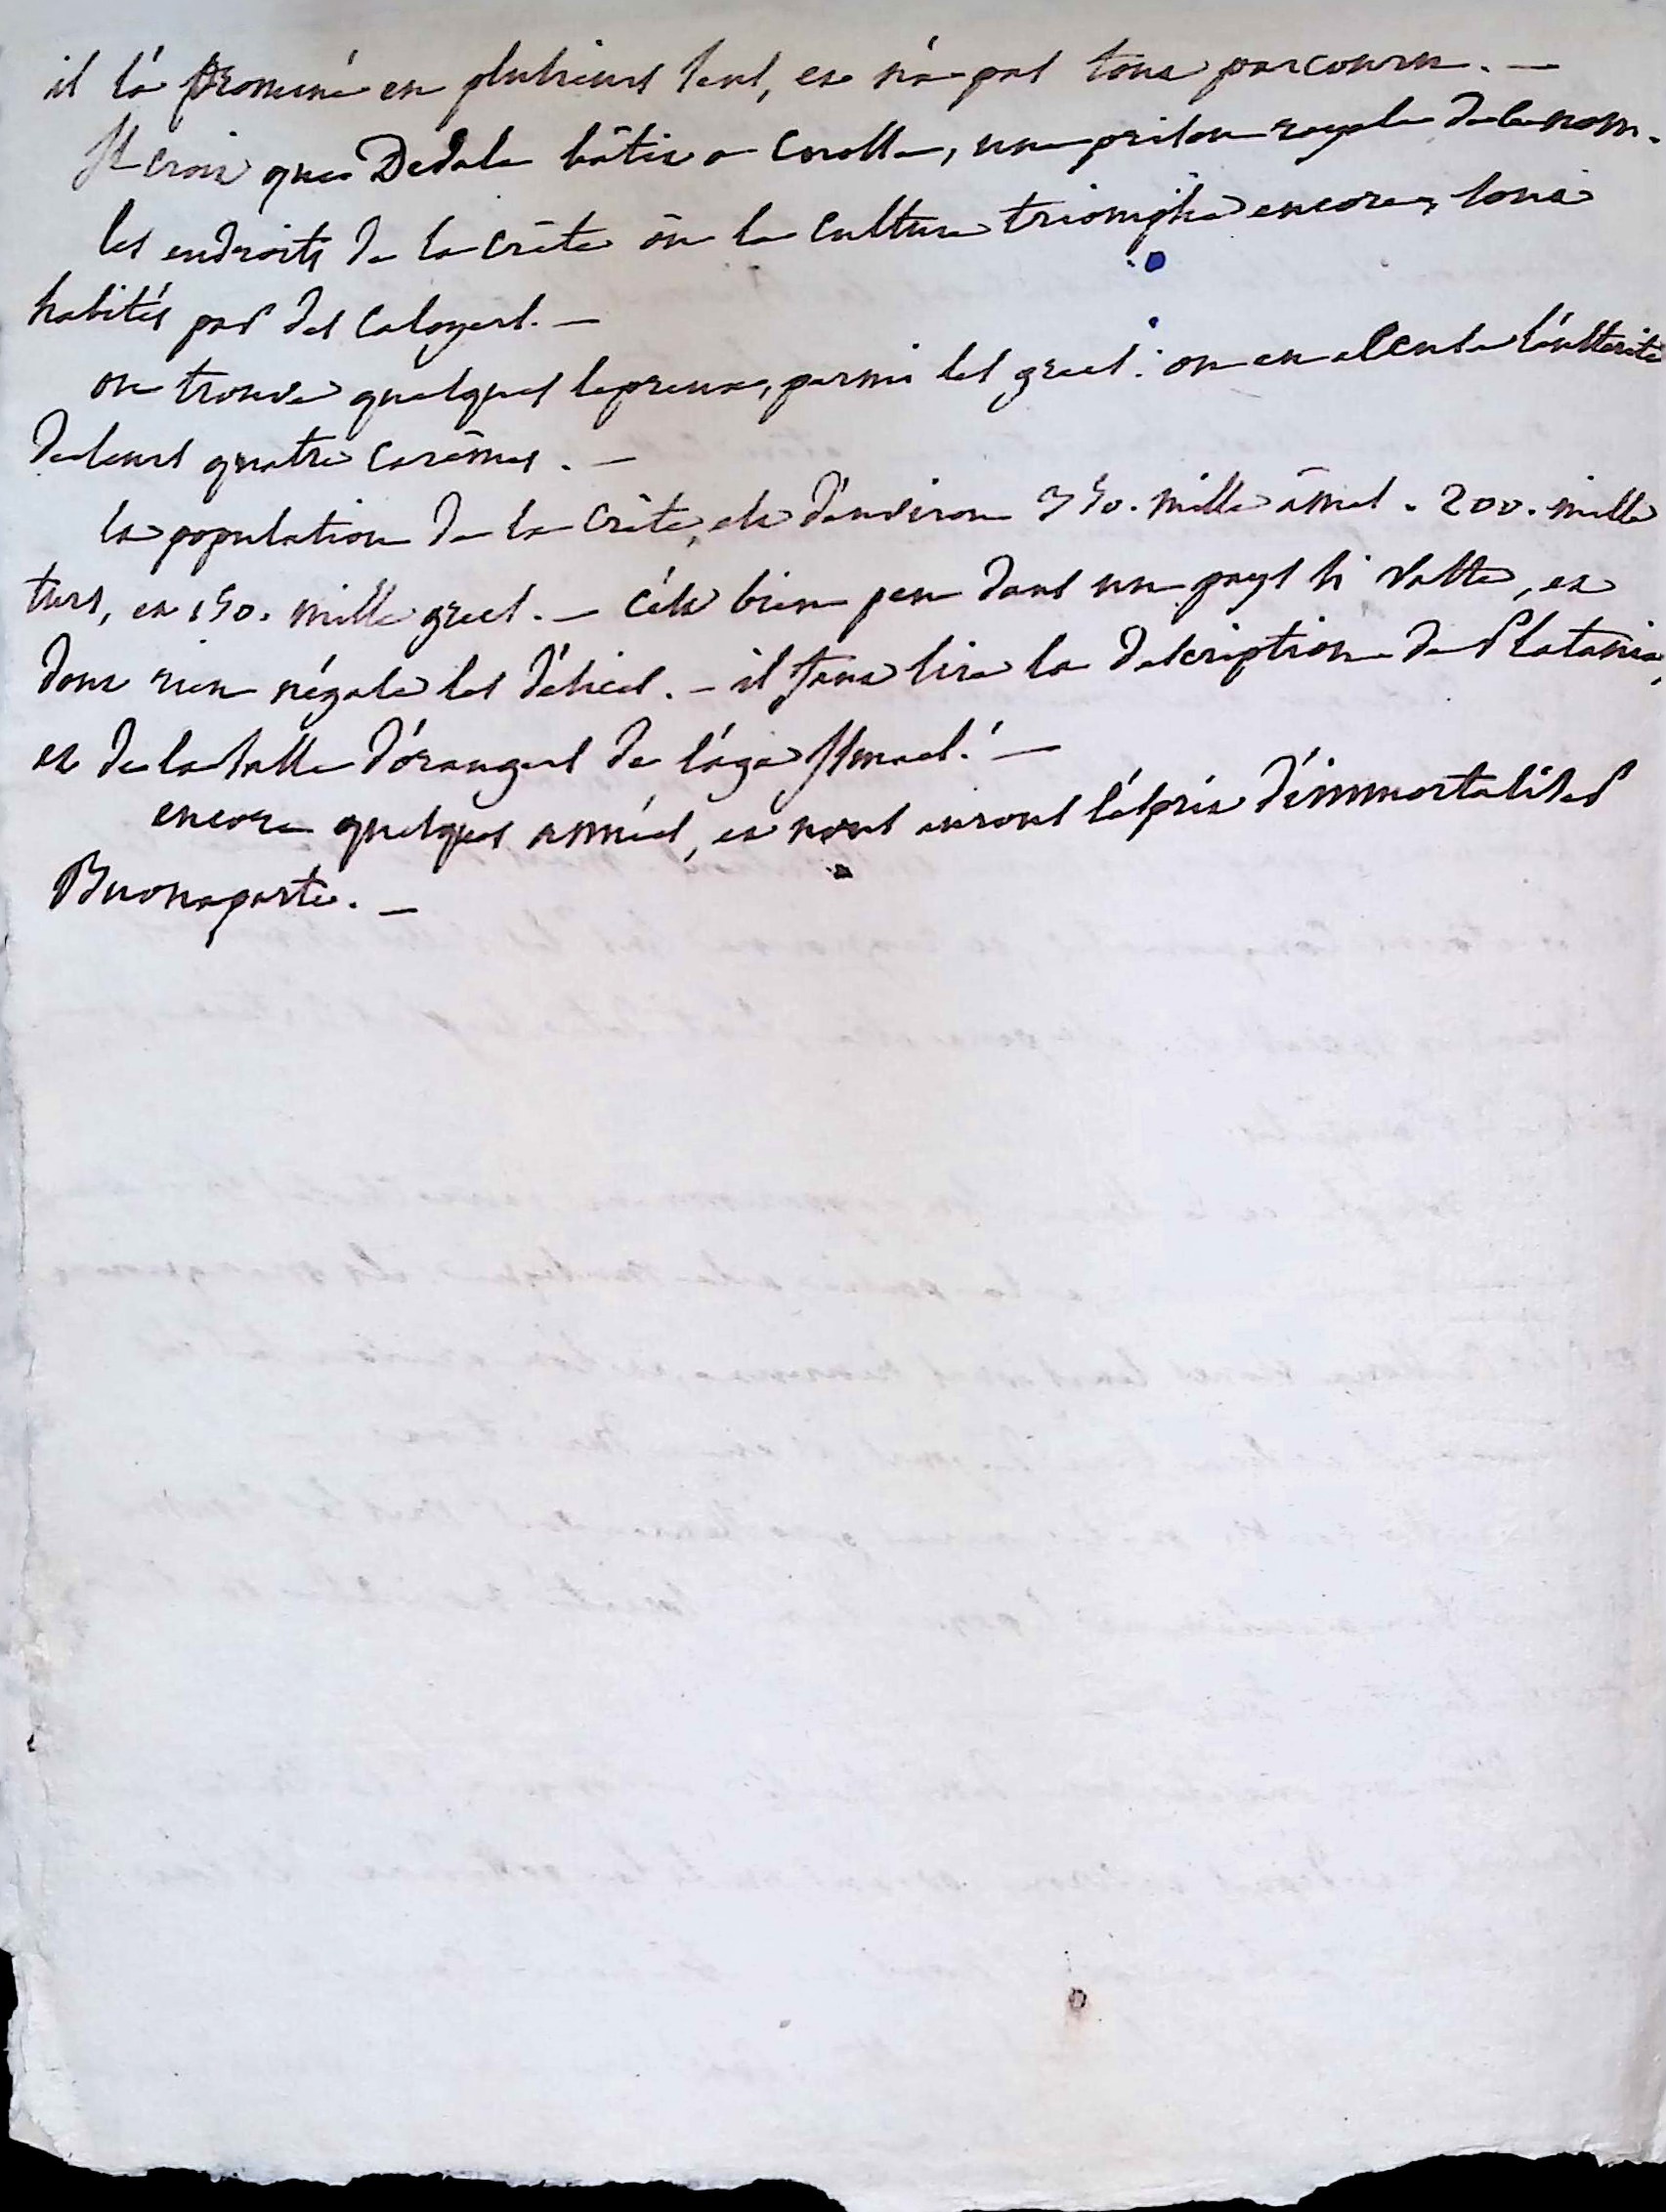 il l'a promené en plusieurs sens, et n'a pas tout parcouru. —
St croix que Dedale bâtit a Cnosse, une prison royale de ce nom.
les endroits de la Crête où la culture triomphe encore, sont
habités par des Caloyers. —
on trouve quelques lepreux, parmi les grecs: on en accuse l'austérité
de leurs quatre carêmes. —
la population de la Crête, est d'environ 350. mille âmes. 200. mille
turs, et 150. mille grecs. — c'est bien peu dans un pays si vaste, et
dont rien n'égale les délices. — il faut lire la description de Platania,
et de la salle d'orangers de l'aga Ismael. —
encore quelques années, et nous aurons l'esprit d'immortaliser
Buonaparte. —